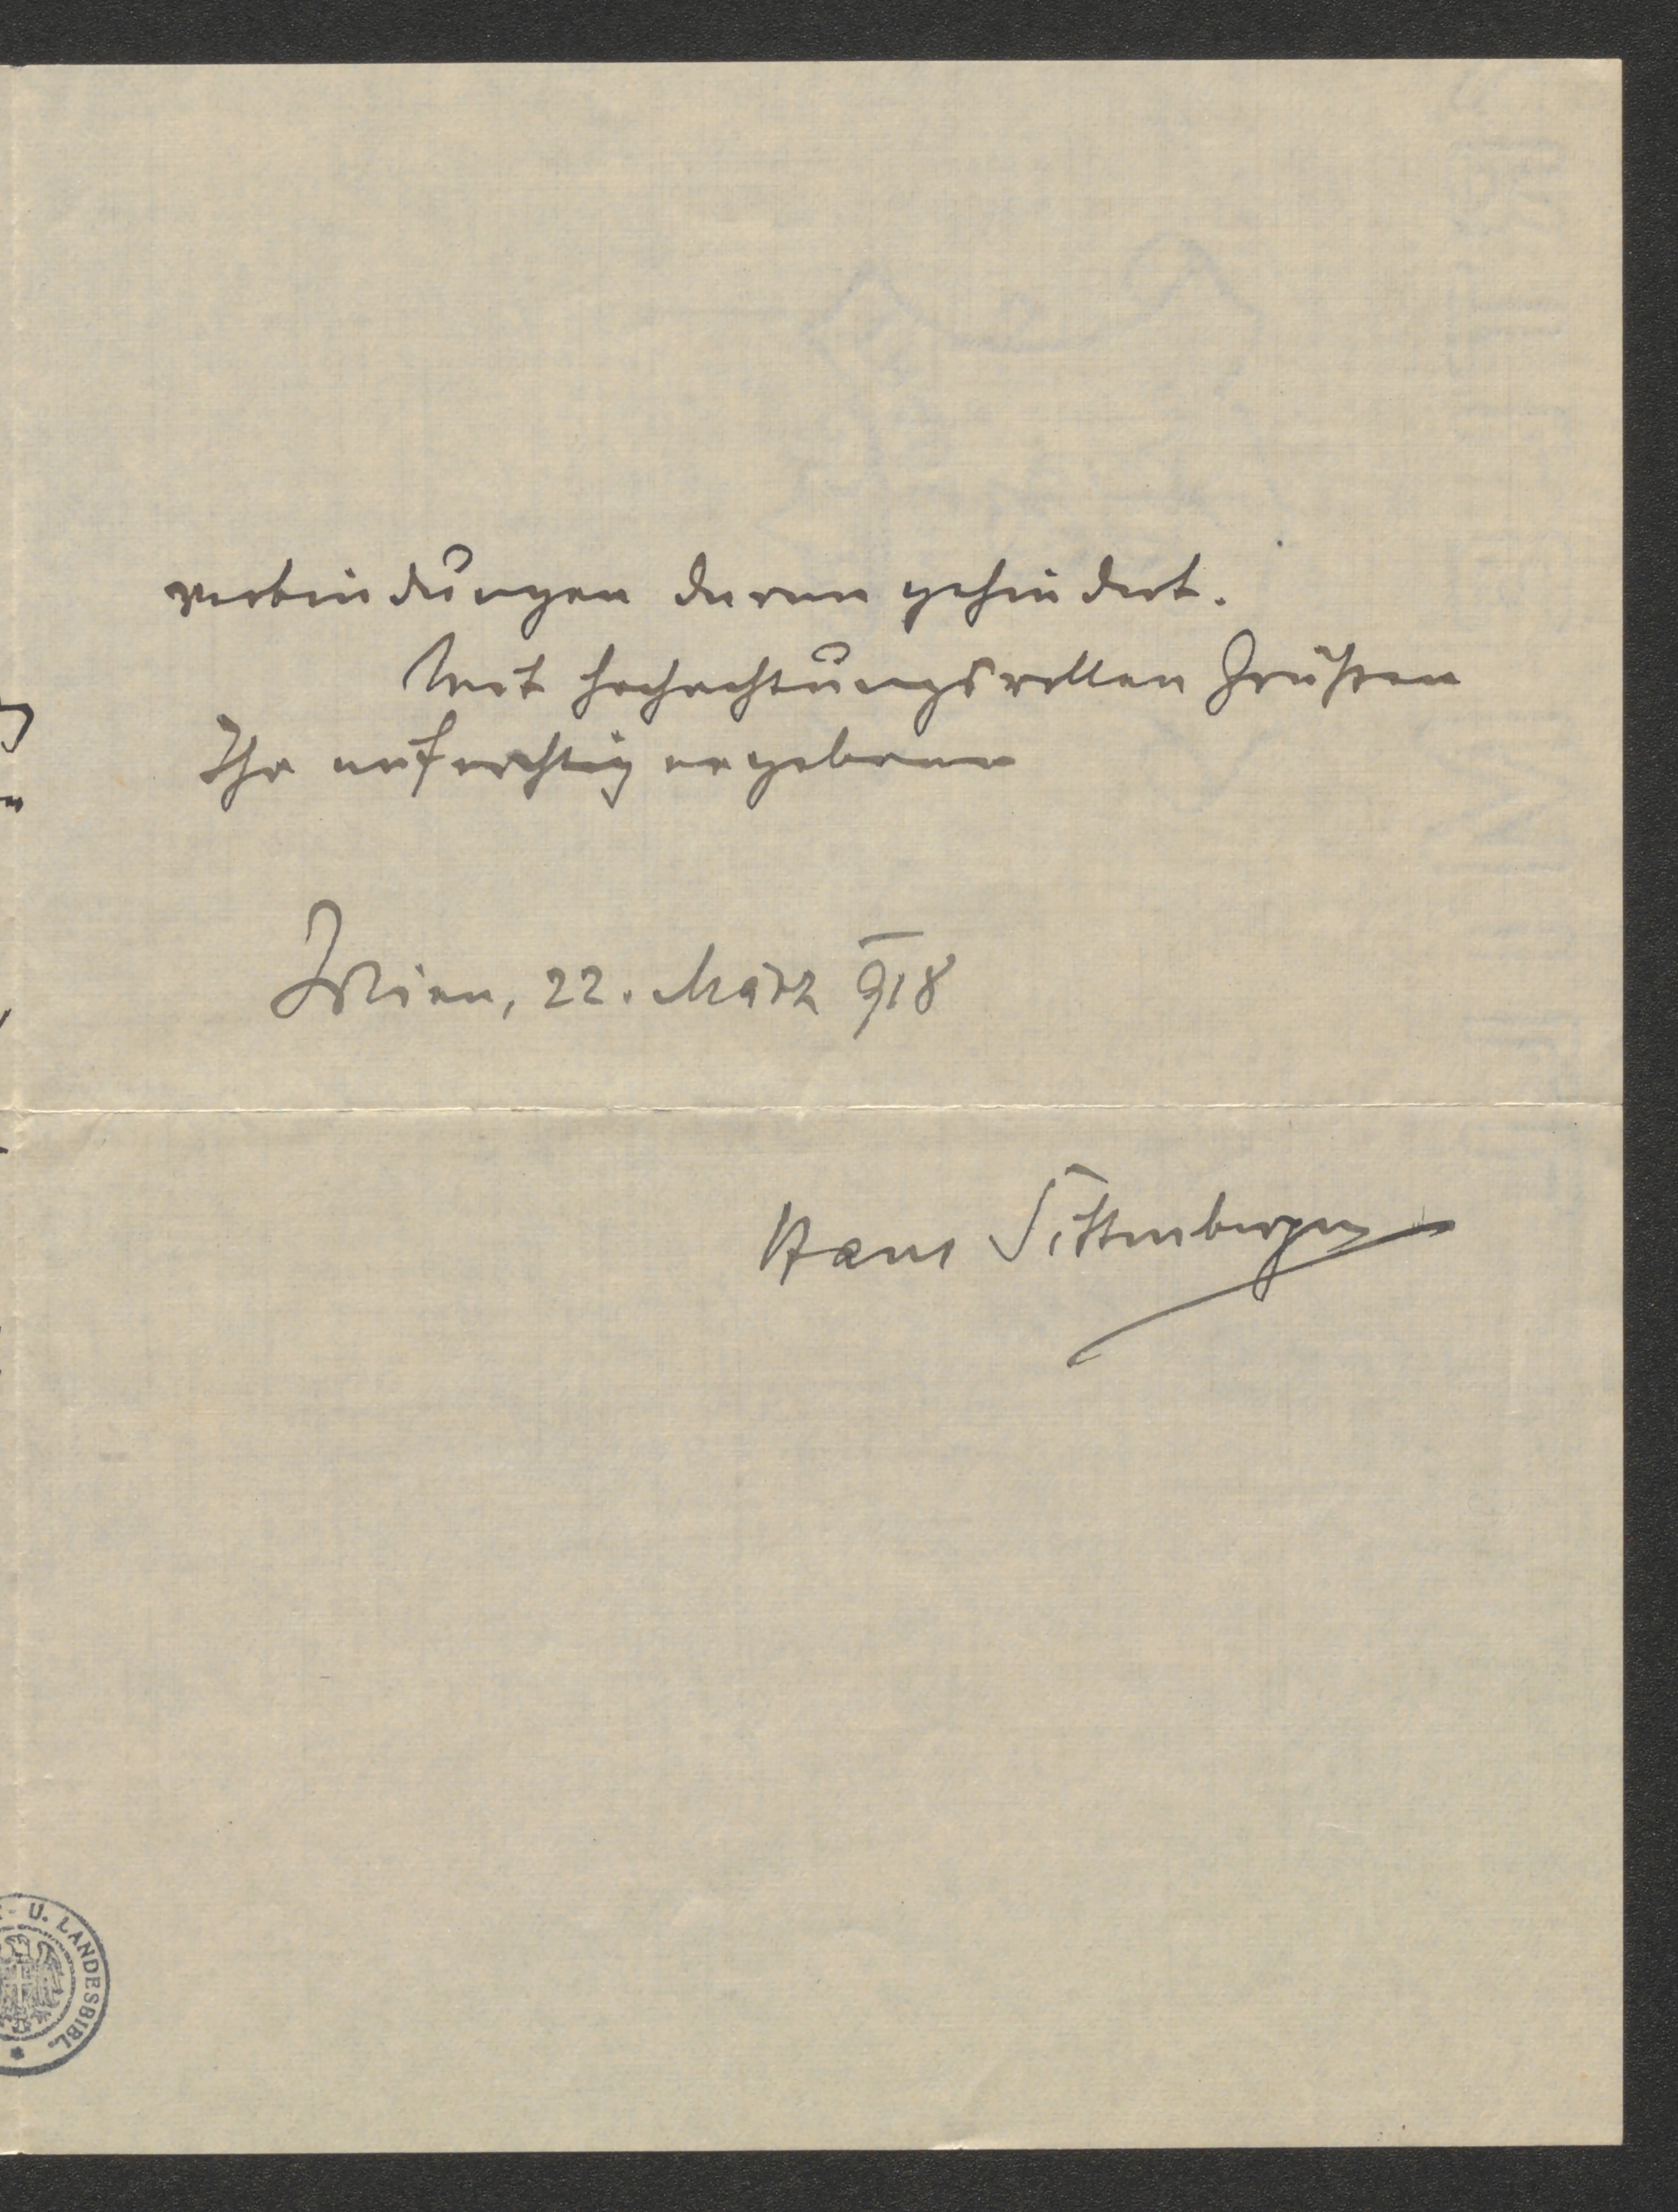 verbindungen daran gehindert.
Mit hochachtungsvollen Grüßen
Ihr aufrichtig ergebener
Wien, 22. März 918
Hans Sittenberger
U. LANDESBIBL.